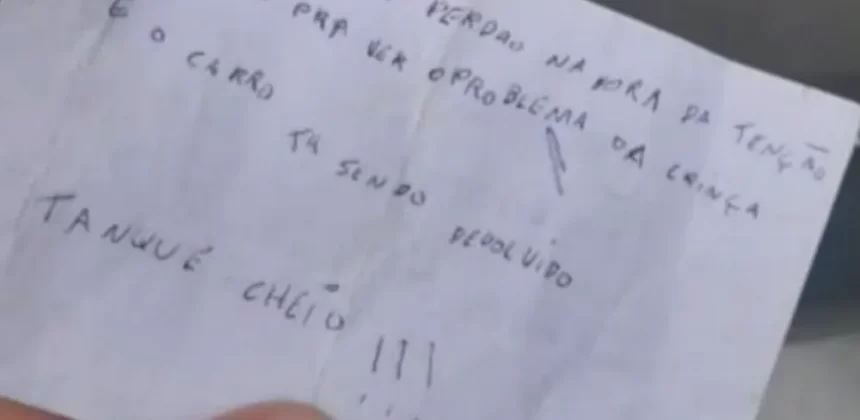 PERDÃO NA HORA DA TENÇÃO
PRA VER O PROBLEMA DA CRINÇA
E O CARRO TA SENDO DEVOLVIDO
TANQUE CHEIO !!!